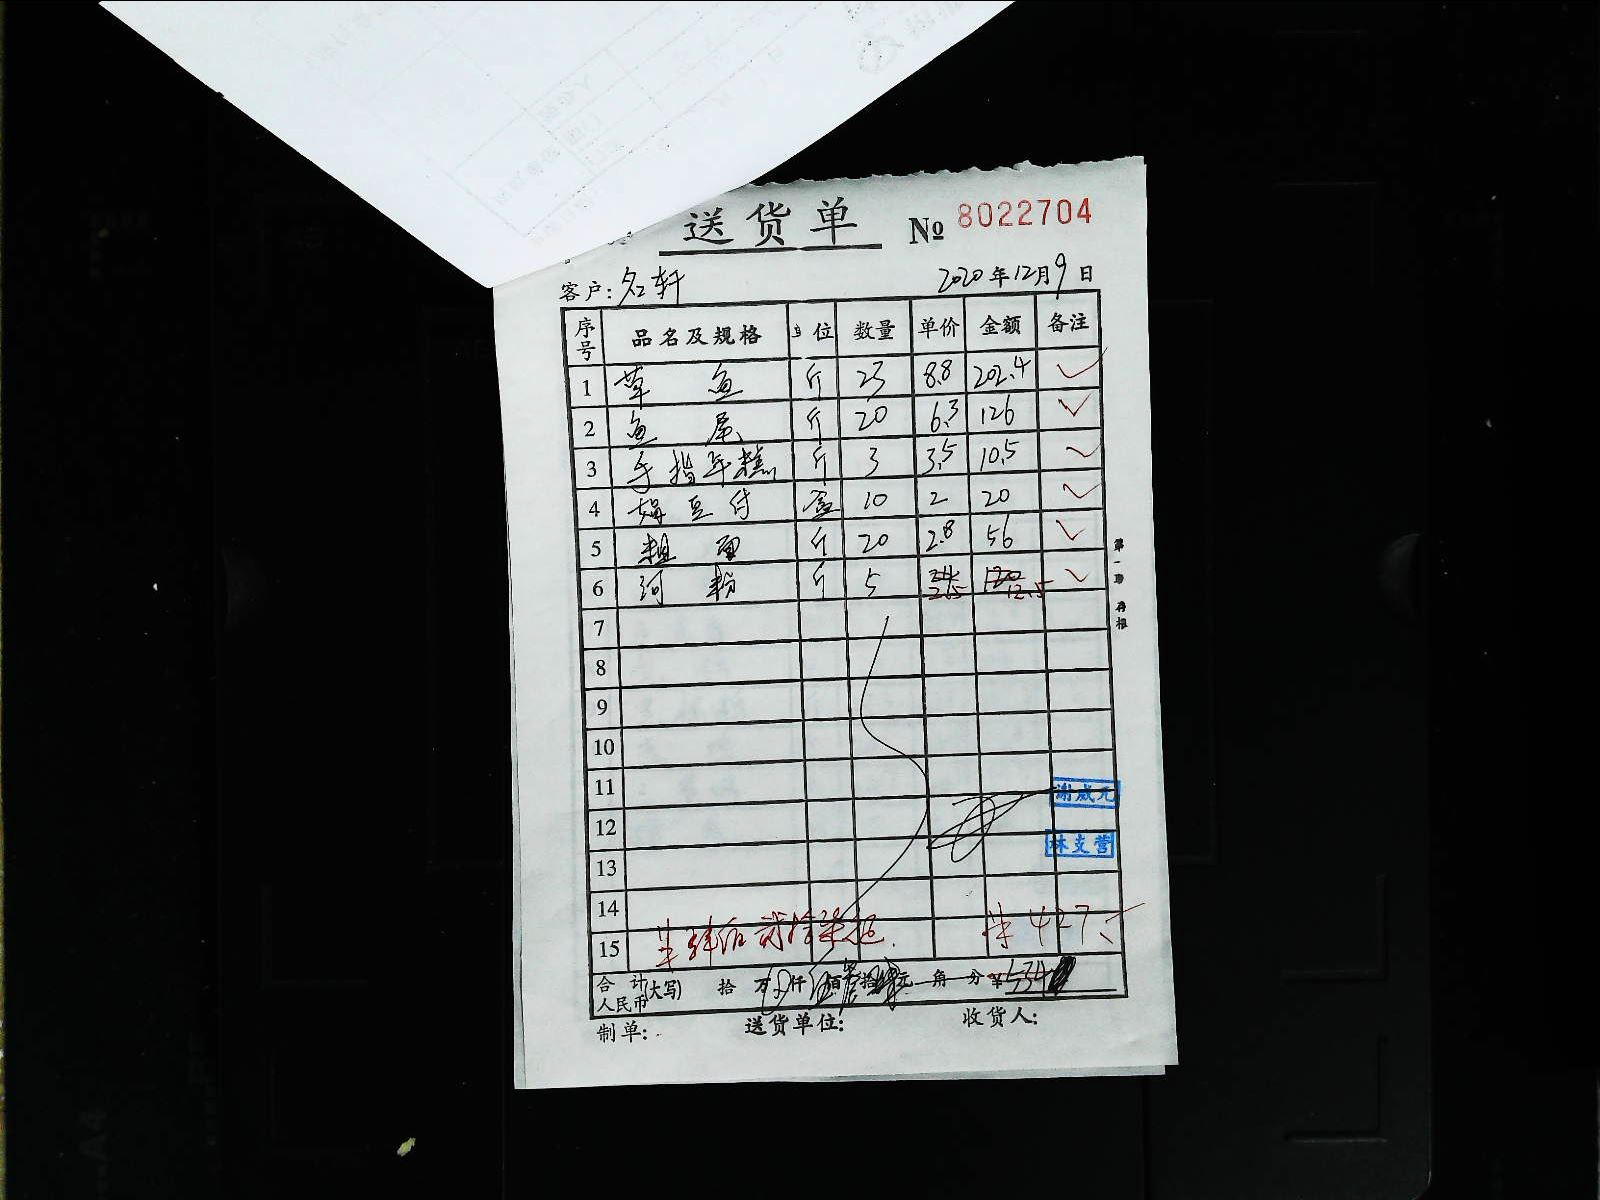 送货单 № 8022704
客户: 名轩 2020年12月9日
序号 品名及规格 单位 数量 单价 金额 备注
1 草鱼 斤 23 8.8 202.4 ✓
2 鱼尾 斤 20 6.3 126 ✓
3 手指年糕 斤 3 3.5 10.5 ✓
4 豆付 盒 10 2 20 ✓
5 粗面 斤 20 2.8 56 ✓
6 河粉 斤 5 2.5 12.5 ✓
7
8
9
10
11 谢威元
12
13 林支营
14
15 427.
合计人民币(大写) 拾 万 仟 佰 拾 元 角 分 ¥534
制单: 送货单位: 收货人:
第一联 存根